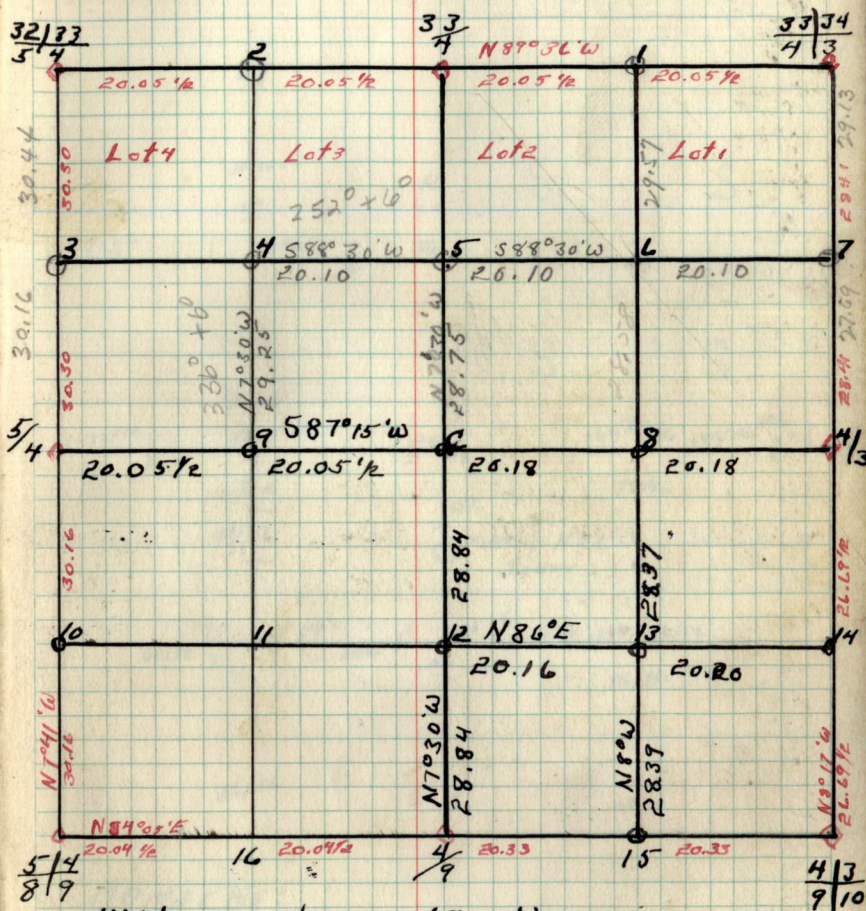 32|33 33 33|34
5|4 2 4 N89°36'W 1 4|3
20.05 1/2 20.05 1/2 20.05 1/2 20.05 1/2
30.44 30.50 Lot 4 Lot 3 Lot 2 29.57 Lot 1 29.13
252° + 6°
3 4 S88°30'W 5 S88°30'W 6 7
20.10 20.10 20.10
30.16 30.50 336° + 6° N7°30'W 29.25 N7°30'W 28.75 27.69
5/4 9 S87°15'W C 8 4/3
20.05 1/2 20.05 1/2 20.18 20.18
30.16 28.84 28.37 26.69 1/2
10 11 12 N86°E 13 14
20.16 20.20
N7°41'W 30.16 N7°30'W 28.84 N8°W 28.39 N8°17'W 26.69 1/2
N84°05'E
20.04 1/2 16 20.04 1/2 4/9 20.33 15 20.33
5|4 4|3
8|9 9|10